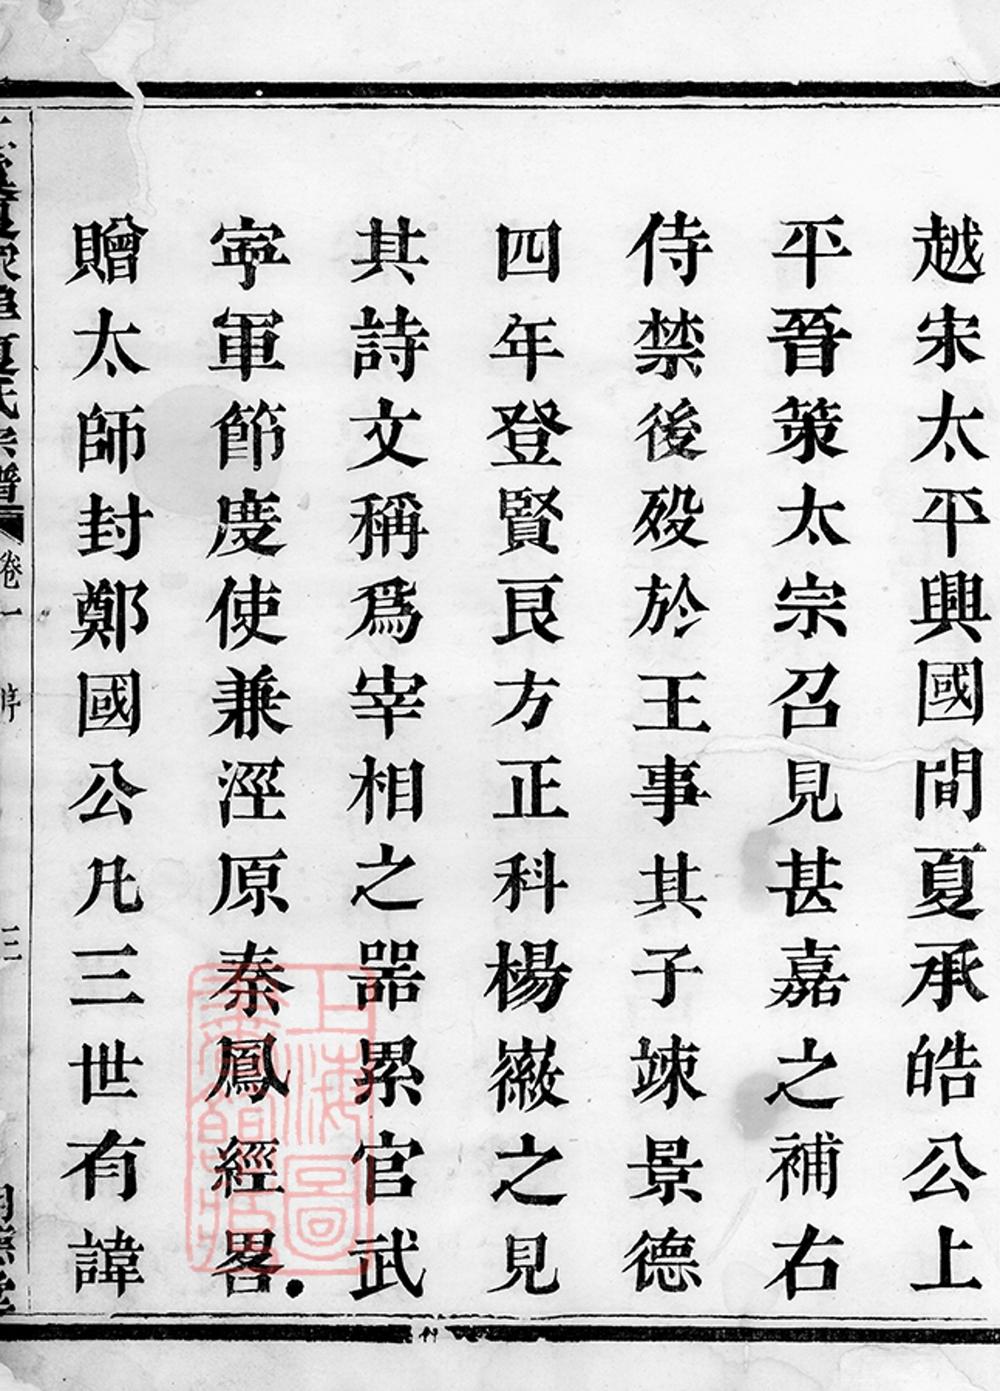 越宋太平興國間夏承皓公上
平晉策太宗召見甚嘉之補右
侍禁後歿於王事其子竦景德
四年登賢良方正科楊徽之見
其詩文稱爲宰相之器累官武
寧軍節度使兼涇原秦鳳經畧
贈太師封鄭國公凡三世有諱
夏氏宗譜 卷一 序 三
上海圖書館藏